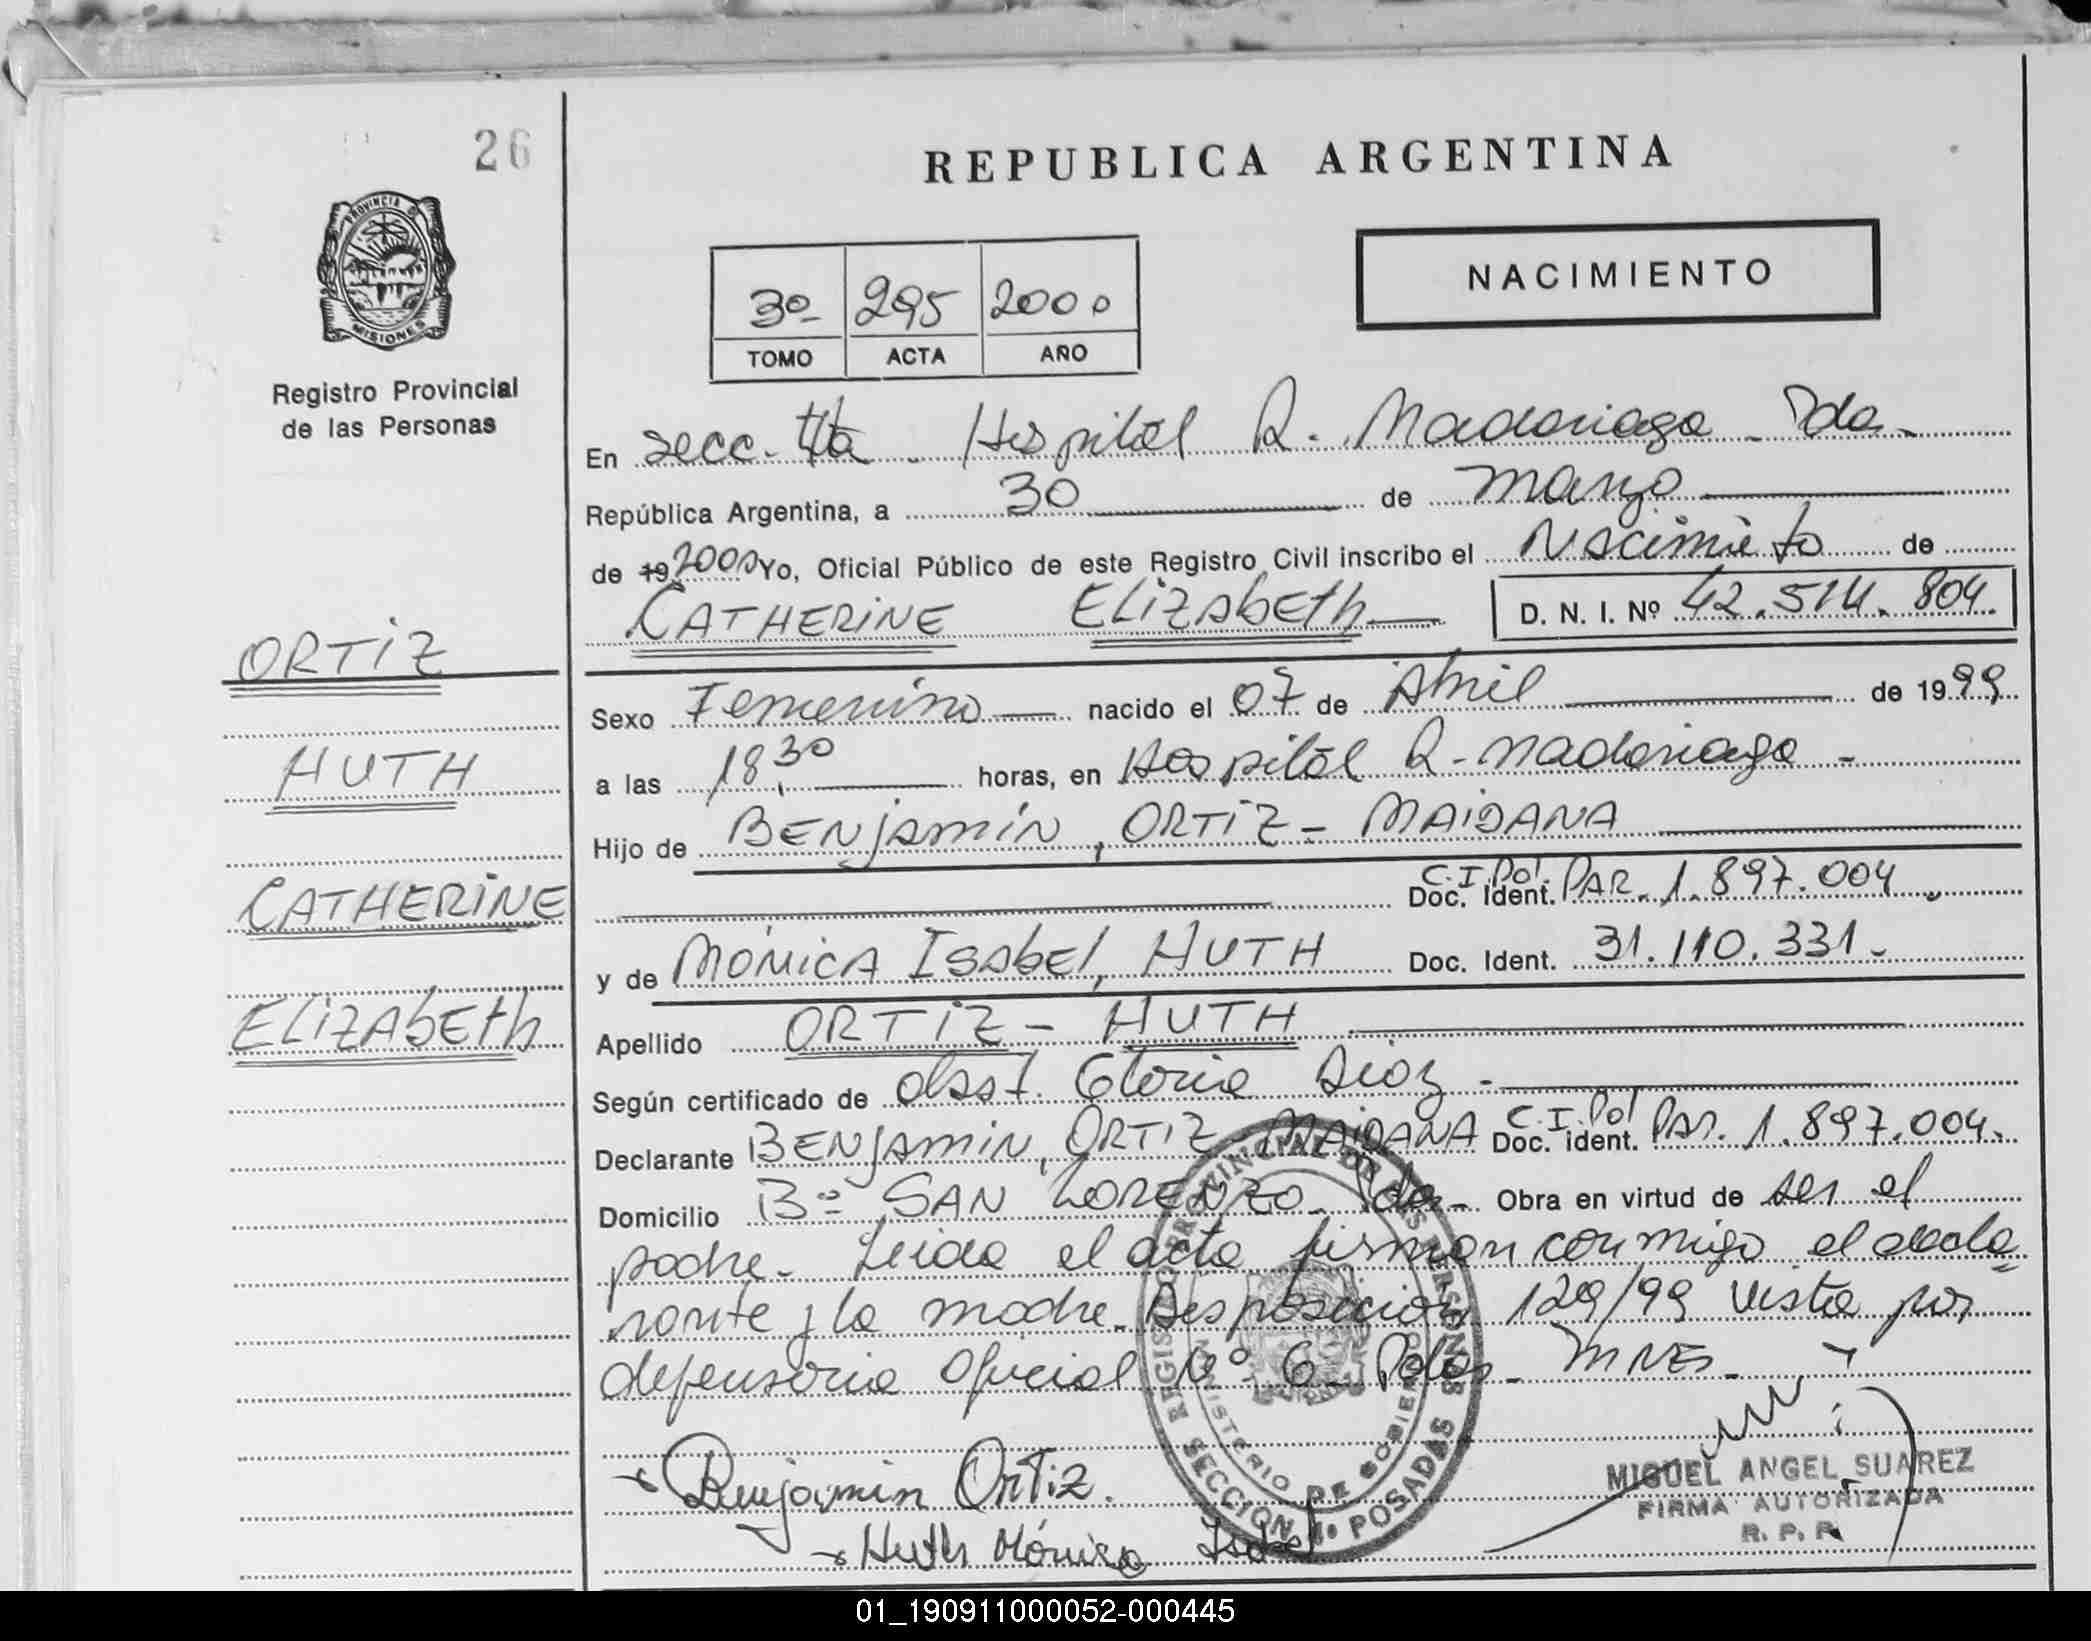 26
REPUBLICA ARGENTINA
PROVINCIA D
MISIONES
Registro Provincial
de las Personas
NACIMIENTO
3º 295 2000
TOMO ACTA AÑO
En secc. 4ta. Hospital R. Madariaga - Pdas.
República Argentina, a 30 de marzo
de 19 2000 Yo, Oficial Público de este Registro Civil inscribo el Nacimieto de
CATHERINE ELIZAbEth D. N. I. Nº 42.514.804.
ORTiZ
HUTH
CATHERINE
ELIZAbEth
Sexo Femenino nacido el 07 de Abril de 1999
a las 18,30 horas, en Hospital R. Madariaga -
Hijo de BENjamín, ORTiZ - MAIDANA
C.I.Pol. Doc. Ident. PAR. 1.897.004.
y de MÓNICA ISAbEl, HUTH Doc. Ident. 31.110.331.
Apellido ORTIZ - HUTH
Según certificado de obst. Gloria Diáz -
Declarante BENjamín, ORTIZ - MAIDANA C.I.Pol Doc. ident. PAR. 1.897.004.
Domicilio Bº SAN LORENZO - Pdas - Obra en virtud de ser el
padre. Leida el acta firman conmigo el decla
rante y la madre. Disposición 129/99 vista por
defensoria oficial Nº 6 - Pdas - MNES -
REGISTRO PROVINCIAL DE LAS PERSONAS
MINISTERIO DE GOBIERNO
SECCION 4º POSADAS
Benjamin Ortiz.
Huth Mónica Isabel
MIGUEL ANGEL SUAREZ
FIRMA AUTORIZADA
R. P. P.
01_190911000052-000445